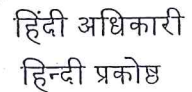 हिंदी अधिकारी
हिन्दी प्रकोष्ठ